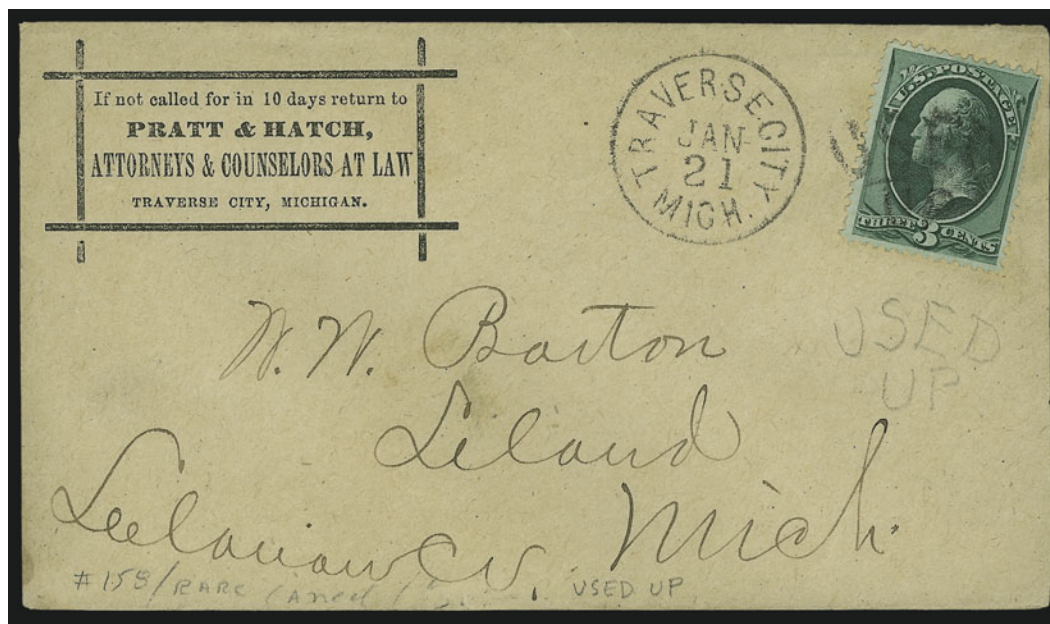 If not called for in 10 days return to
PRATT & HATCH,
ATTORNEYS & COUNSELORS AT LAW
TRAVERSE CITY, MICHIGAN.
TRAVERSE CITY
JAN
21
MICH.
U.S. POSTAGE
THREE 3 CENTS
W. W. Barton
Leland
Leelanaw Co. Mich.
USED
UP
#158/RARE Cancel
USED UP